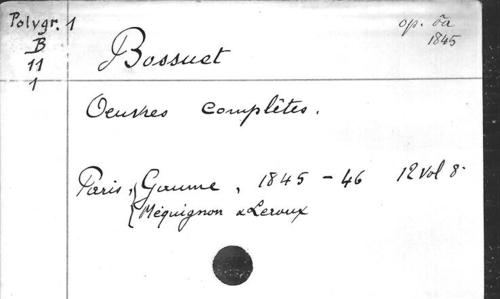 Polygr. 1
B
11
1
op. Fa
1845
Bossuet
Oeuvres complêtes.
Paris, Gaume, 1845-46 12 Vol 8°
Méquignon & Leroux